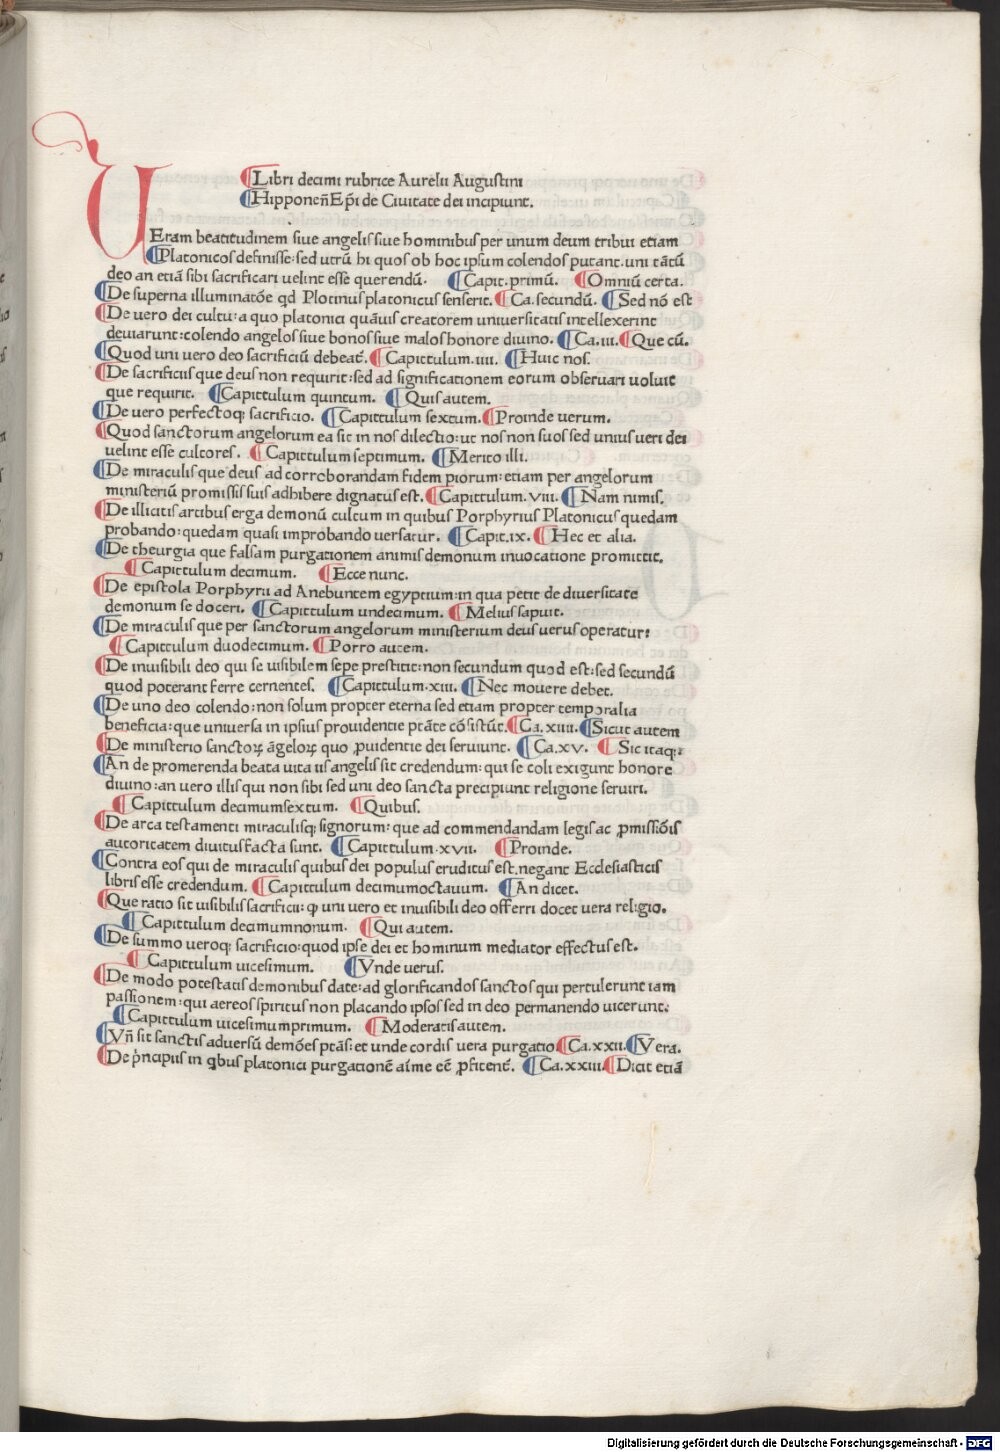 Libri decimi rubrice Aurelii Augustini
Hipponen̄ Ep̄i de Ciuitate dei incipiunt.
VEram beatitudinem siue angelis siue hominibus per unum deum tribui etiam
Platonicos definisse: sed utrū hi quos ob hoc ipsum colendos putant. uni tātū
deo an etiā sibi sacrificari uelint esse querendū. Capit. primū. Omniū certa.
De superna illuminatōe qd Plotinus platonicus senserit. Ca. secundū. Sed nō est
De uero dei cultu: a quo platonici quāuis creatorem uniuersitatis intellexerint
deuiarunt: colendo angelos siue bonos siue malos honore diuino. Ca. iii. Que cū.
Quod uni uero deo sacrificiū debeat̄. Capittulum. iiii. Huic nos.
De sacrificiis que deus non requirit: sed ad significationem eorum obseruari uoluit
que requirit. Capittulum quintum. Quis autem.
De uero perfectoq; sacrificio. Capittulum sextum. Proinde uerum.
Quod sanctorum angelorum ea sit in nos dilectio: ut nos non suos sed unius ueri dei
uelint esse cultores. Capittulum septimum. Merito illi.
De miraculis que deus ad corroborandam fidem piorum: etiam per angelorum
ministeriū promissis suis adhibere dignatus est. Capittulum. viii. Nam nimis.
De illicitis artibus erga demonū cultum in quibus Porphyrius Platonicus quedam
probando: quedam quasi improbando uersatur. Capit. ix. Hec et alia.
De theurgia que falsam purgationem animis demonum inuocatione promittit.
Capittulum decimum. Ecce nunc.
De epistola Porphyrii ad Anebuntem egyptium: in qua petit de diuersitate
demonum se doceri. Capittulum undecimum. Melius sapuit.
De miraculis que per sanctorum angelorum ministerium deus uerus operatur:
Capittulum duodecimum. Porro autem.
De inuisibili deo qui se uisibilem sepe prestitit: non secundum quod est: sed secundū
quod poterant ferre cernentes. Capittulum. xiii. Nec mouere debet.
De uno deo colendo: non solum propter eterna sed etiam propter temporalia
beneficia: que uniuersa in ipsius prouidentie ptāte cōsistūt. Ca. xiiii. Sicut autem
De ministerio sanctoꝝ āgeloꝝ quo ꝓuidentie dei seruiunt. Ca. xv. Sic itaq;
An de promerenda beata uita iis angelis sit credendum: qui se coli exigunt honore
diuino: an uero illis qui non sibi sed uni deo sancta precipiunt religione seruiri.
Capittulum decimumsextum. Quibus.
De arca testamenti miraculisq; signorum: que ad commendandam legis ac ꝓmissiōis
autoritatem diuitus facta sunt. Capittulum. xvii. Proinde.
Contra eos qui de miraculis quibus dei populus eruditus est. negant Ecclesiasticis
libris esse credendum. Capittulum decimumoctauum. An dicet.
Que ratio sit uisibilis sacrificii: ꝙ uni uero et inuisibili deo offerri docet uera religio.
Capittulum decimumnonum. Qui autem.
De summo ueroq; sacrificio: quod ipse dei et hominum mediator effectus est.
Capittulum uicesimum. Vnde uerus.
De modo potestatis demonibus date: ad glorificandos sanctos qui pertulerunt iam
passionem: qui aereos spiritus non placando ipsos sed in deo permanendo uicerunt.
Capittulum uicesimumprimum. Moderatis autem.
Vn̄ sit sanctis aduersū demōes ptās: et unde cordis uera purgatio Ca. xxii. Vera.
De p̄ncipiis in q̄bus platonici purgationē aīme eē ꝓfitent̄. Ca. xxiii. Dicit etiā
Digitalisierung gefördert durch die Deutsche Forschungsgemeinschaft - DFG